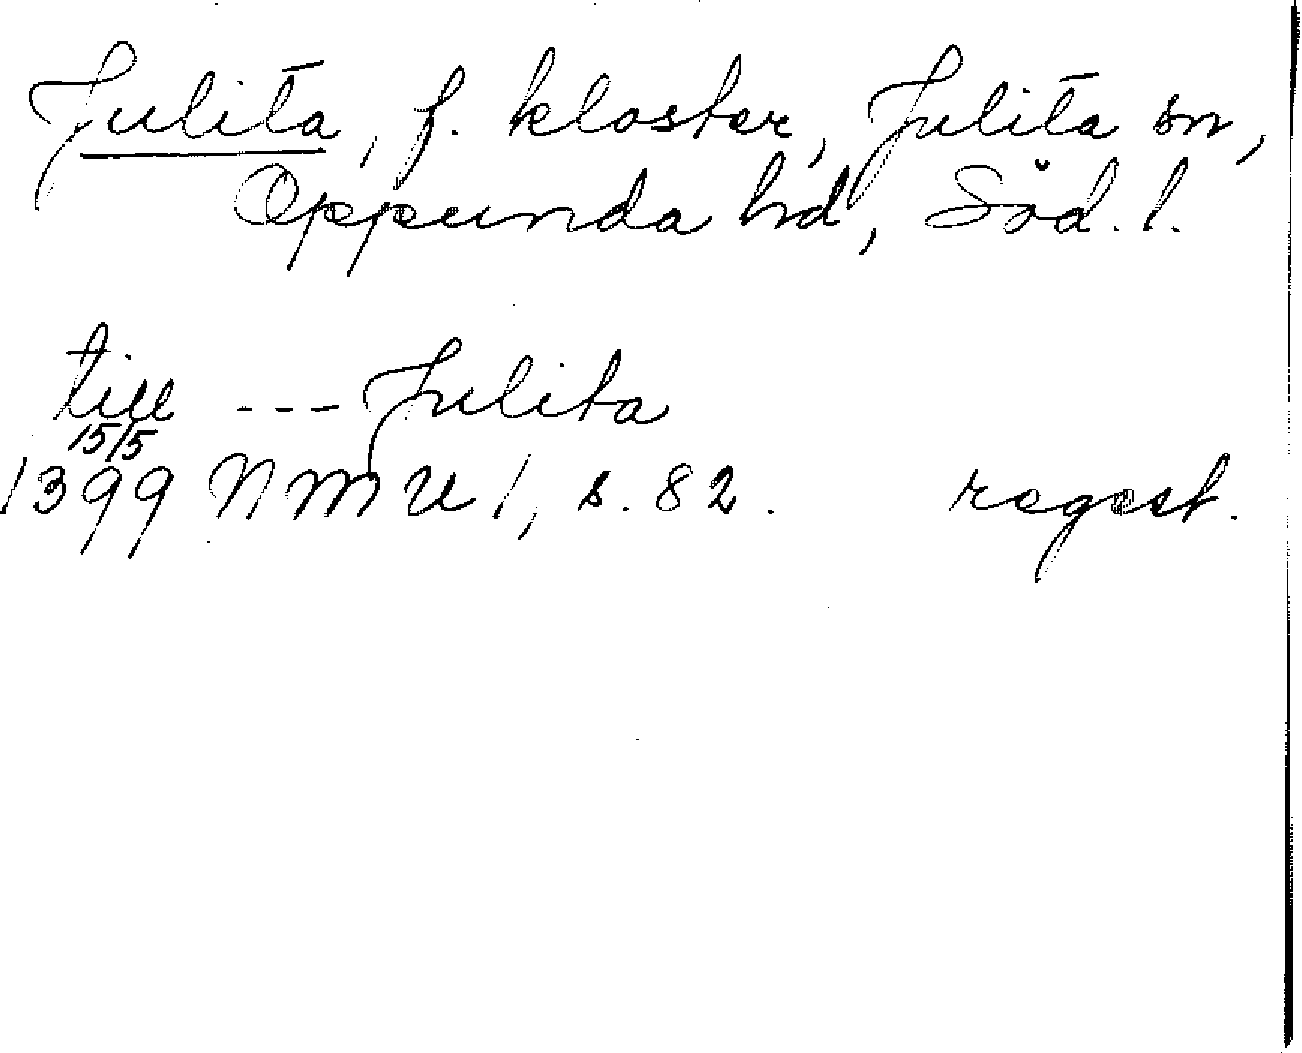 Julita, f. kloster, Julita sn,
Oppunda hd, Söd. l.
till --- Julita
15/5
1399 NMU 1, s. 82. regest.